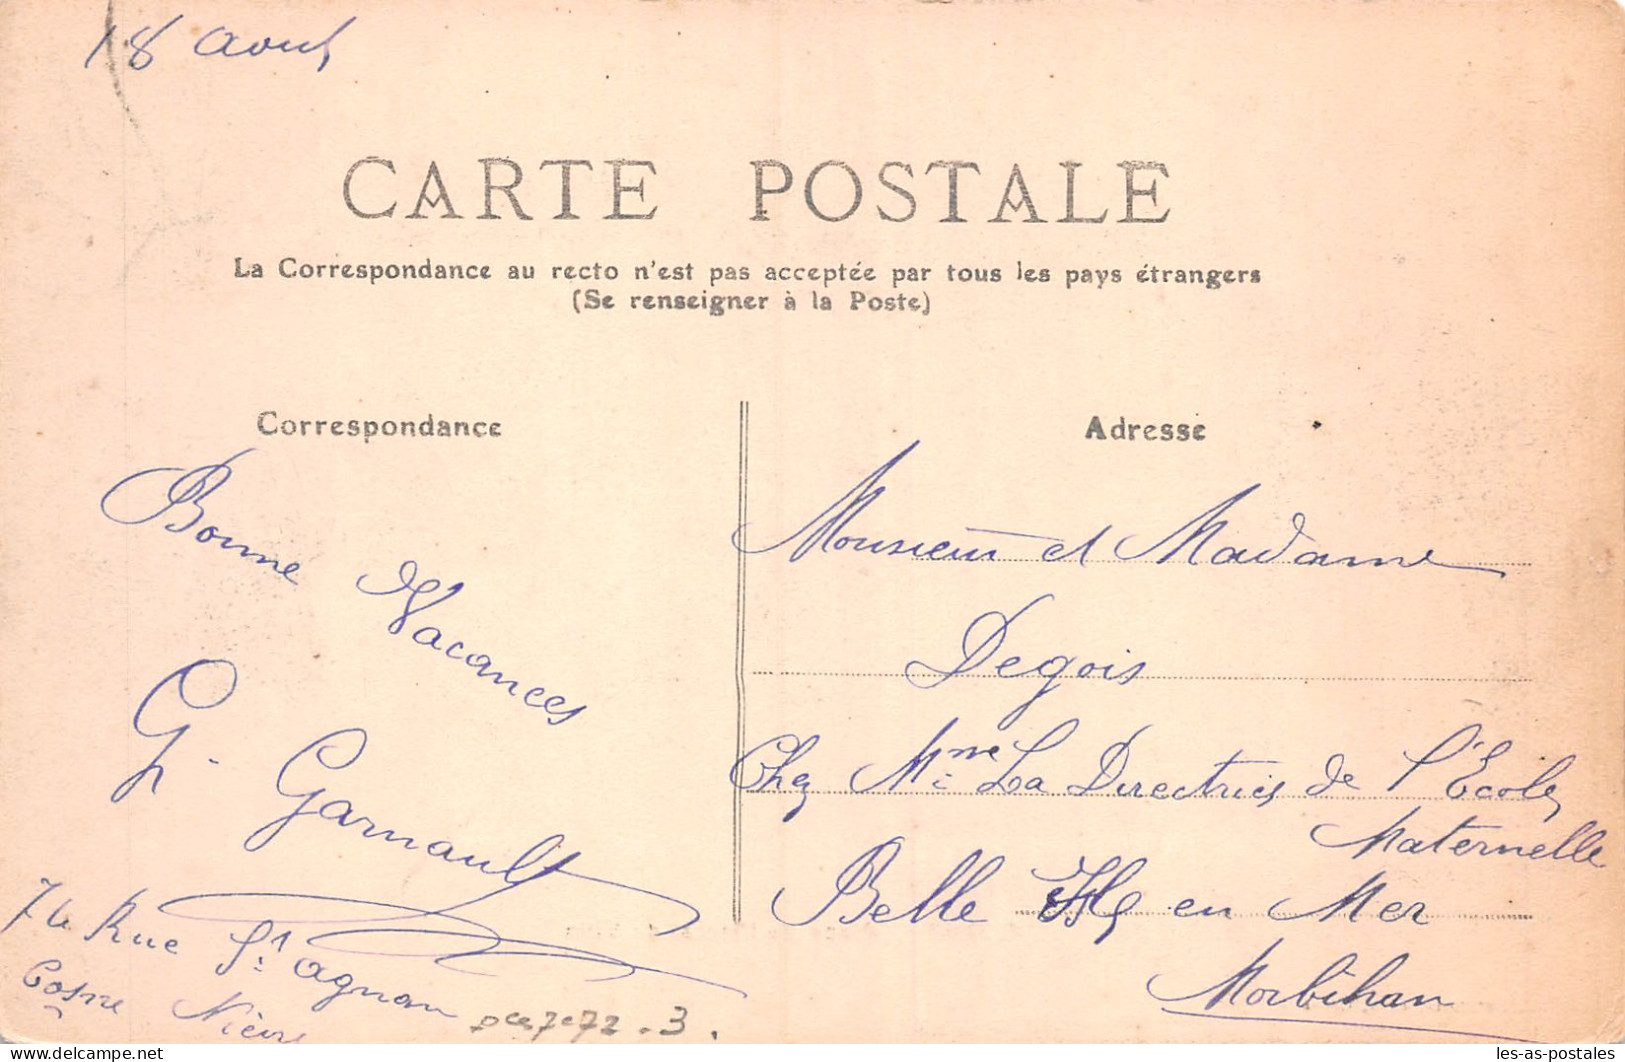 18 Aout
CARTE POSTALE
La Correspondance au recto n'est pas acceptée par tous les pays étrangers
(Se renseigner à la Poste)
Correspondance
Bonne Vacances
G. Garnault
74 Rue St agnan
Cosne Nièvre
Adresse
Monsieur et Madame
Degois
Chez Mme La Directrice de l'École
Maternelle
Belle Ile en Mer
Morbihan
les-as-postales